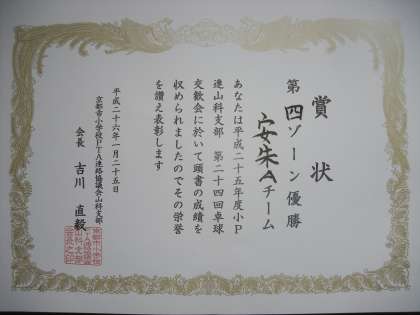 賞状
第四ゾーン優勝
安朱Aチーム
あなたは平成二十五年度小P
連山科支部 第二十四回卓球
交歓会に於いて頭書の成績を
収められましたのでその栄誉
を讃え表彰します
平成二十六年一月二十五日
京都市小学校PTA連絡協議会山科支部
会長 吉川 直毅